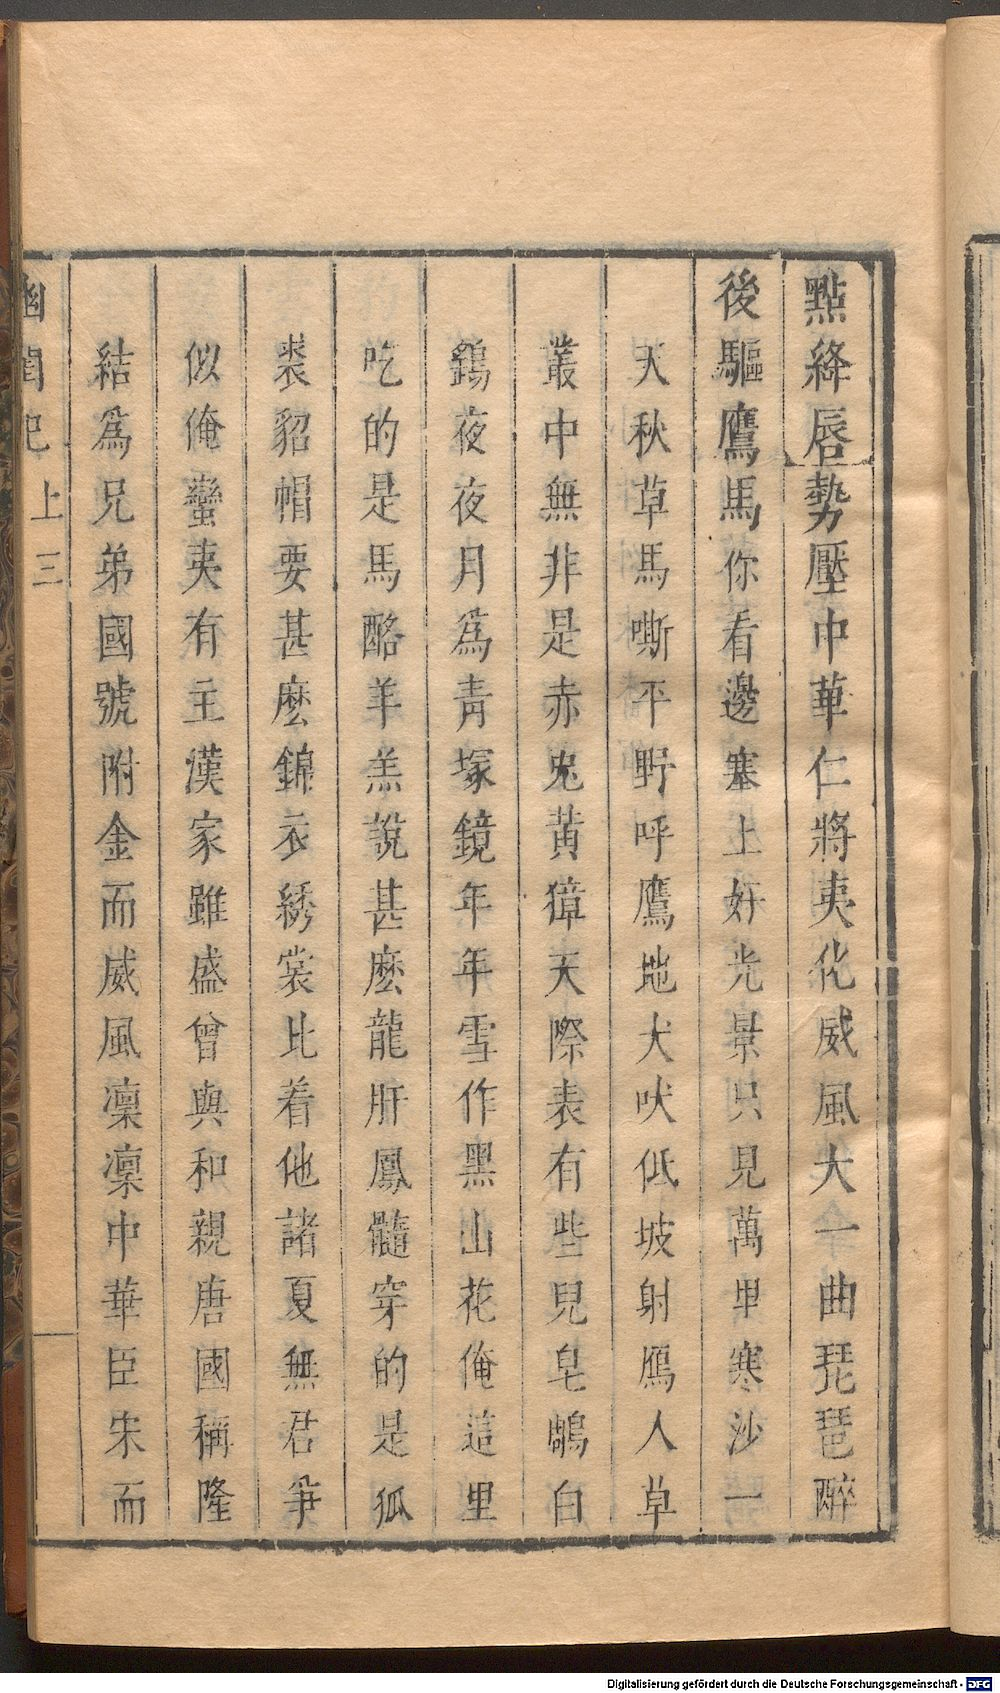 點絳唇勢壓中華仁將夷化威風大一曲琵琶醉
後驅鷹馬你看邊塞上好光景只見萬里寒沙一
天秋草馬嘶平野呼鷹地犬吠低坡射鴈人草
叢中無非是赤兎黃獐天際表有些兒皂鵰白
鷂夜夜月爲青塚鏡年年雪作黑山花俺這里
吃的是馬酪羊羔說甚麽龍肝鳳髓穿的是狐
裘貂帽要甚麽錦衣綉裳比着他諸夏無君爭
似俺蠻夷有主漢家雖盛曾與和親唐國稱隆
結爲兄弟國號附金而威風凜凜中華臣宋而
幽閨記 上 三
Digitalisierung gefördert durch die Deutsche Forschungsgemeinschaft - DFG